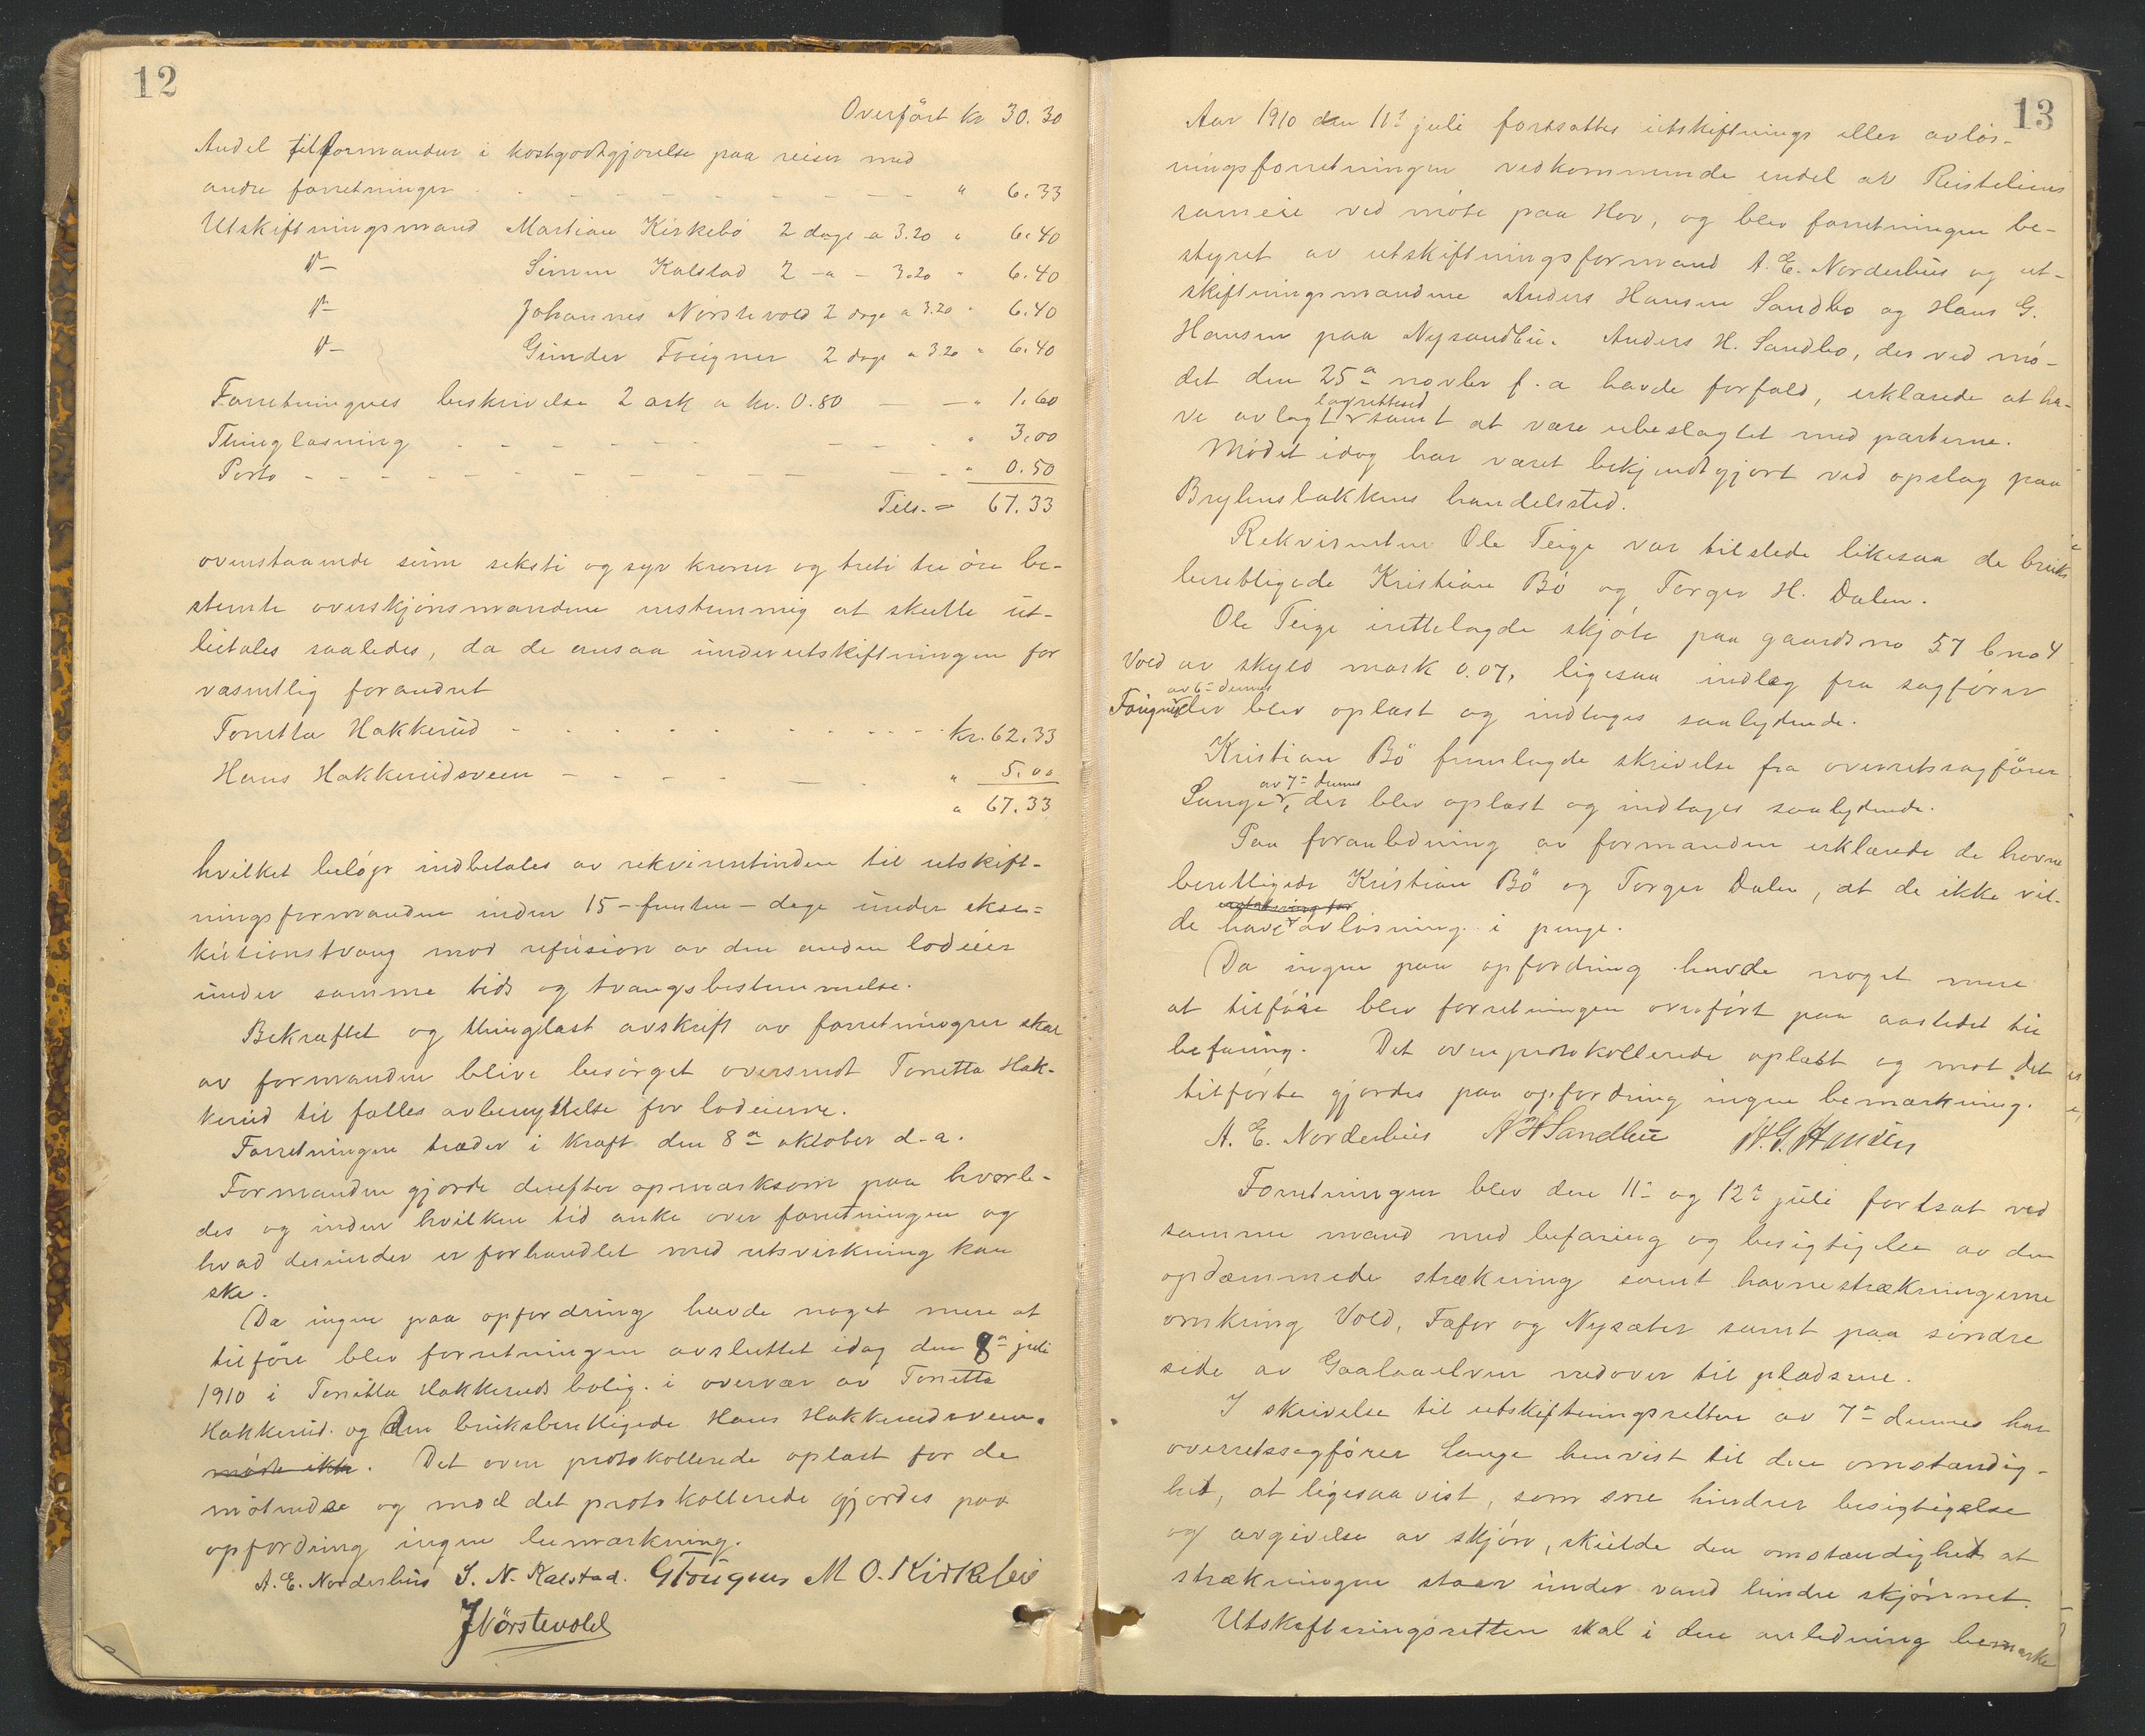 12
Overført kr 30.30
Andel til formanden i kostgodtgjørelse paa reiser med
andre forretninger - - - - - - - - " 6.33
Utskiftningsmand Martian Kirkebö 2 dage a 3.20 " 6.40
-"- Simen Kalstad 2 -a- 3.20 " 6.40
-"- Johannes Nörstevold 2 dage a 3.20 " 6.40
-"- Gunder Fougner 2 dage a 3.20 " 6.40
Forretningens beskrivelse 2 ark a kr. 0.80 — — " 1.60
Thinglæsning - - - - - - - - " 3.00
Porto - - - - - - - - " 0.50
Tils. = 67.33
ovenstaaende sum seksti og syv kroner og treti tre öre be-
stemte overskjönsmændene enstemmig at skulle ut-
betales saaledes, da de ansaa underutskiftningen for
væsentlig forandret
Tonetta Hakkerud - - - - - - kr. 62.33
Hans Hakkerudsveen - - - - " 5.00
" 67.33
hvilket belöp indbetales av rekvirentinden til utskift-
ningsformanden inden 15 - femten - dage under ekse=
kutionstvang mod refusion av den anden lodeier
under samme tids og tvangsbestemmelse.
Bekræftet og thinglæst avskrift av forretningen skal
av formanden blive besörget oversendt Tonetta Hak-
kerud til fælles avbenyttelse for lodeierne.
Forretningen træder i kraft den 8de oktober d. a.
Formanden gjorde derefter opmerksom paa hvorle-
des og inden hvilken tid anke over forretningen og
hvad derunder er forhandlet med utsvirkning kan
ske.
Da ingen paa opfordring havde noget mere at
tilföre blev forretningen avsluttet idag den 8de juli
1910 i Tonetta Hakkeruds bolig. i overvær av Tonetta
Hakkerud. og den bruksberettigede Hans Hakkerudsveen.
mötte ikke. Det oven protokollerede oplæst for de
mötende og mod det protokollerede gjordes paa
opfordring ingen bemærkning.
A. E. Norderhus S. N. Kalstad. G Fougner M O. Kirkebö
J Nörstevold
13
Aar 1910 den 11te juli fortsattes utskiftnings eller avlös-
ningsforretningen vedkommende endel av Reisteliens
sameie ved möte paa Hov, og blev forretningen be-
styret av utskiftningsformand A. E. Norderhus og ut-
skiftningsmændene Anders Hansen Sandbo og Hans G.
Hansen paa Nysandbu. Anders H. Sandbo, der ved mö-
det den 25de novber f. a havde forfald, erklærede at ha-
ve avlagt lagretteed samt at være ubeslægtet med parterne.
Mödet idag har været bekjendtgjort ved opslag paa
Brylensbakkens handelssted.
Rekvirenten Ole Teige var tilstede likesaa de bruks
berettigede Kristian Bö og Torger H. Dalen.
Ole Teige irettelagde skjöte paa gaardsno 57 bno 4
Vold av skyld mark 0.07, ligesaa indlæg fra sagförer
Fougner av 6te dennes der blev oplæst og indtages saalydende.
Kristian Bö fremlagde skrivelse fra overretssagförer
Lange av 7de dennes, der blev oplæst og indtages saalydende.
Paa foranledning av formanden erklærede de havne
berettigede Kristian Bö og Torger Dalen, at de ikke vil-
de have avlösning i penge.
Da ingen paa opfordring havde noget mere
at tilföie blev forretningen overfört paa aastedet til
befaring. Det oven protokollerede oplæst og mot det
tilförte gjordes paa opfordring ingen bemærkning.
A. E. Norderhus A H Sandbu H. G. Hansen
Forretningen blev den 11te og 12te juli fortsat ved
samme mænd med befaring og besigtigelse av den
opdæmmede strækning samt havnestrækningerne
omkring Vold, Fæfor og Nysæter samt paa söndre
side av Gaalaaelven nedover til pladsene.
I skrivelse til utskiftningsretten av 7de dennes har
overretssagförer Lange henvist til den omstændig-
het, at ligesaa vist, som sne hindrer besigtigelse
og avgivelse av skjön, skulde den omstændighet at
strækningen staar under vand hindre skjönnet.
Utskiftningsretten skal i den anledning bemærke